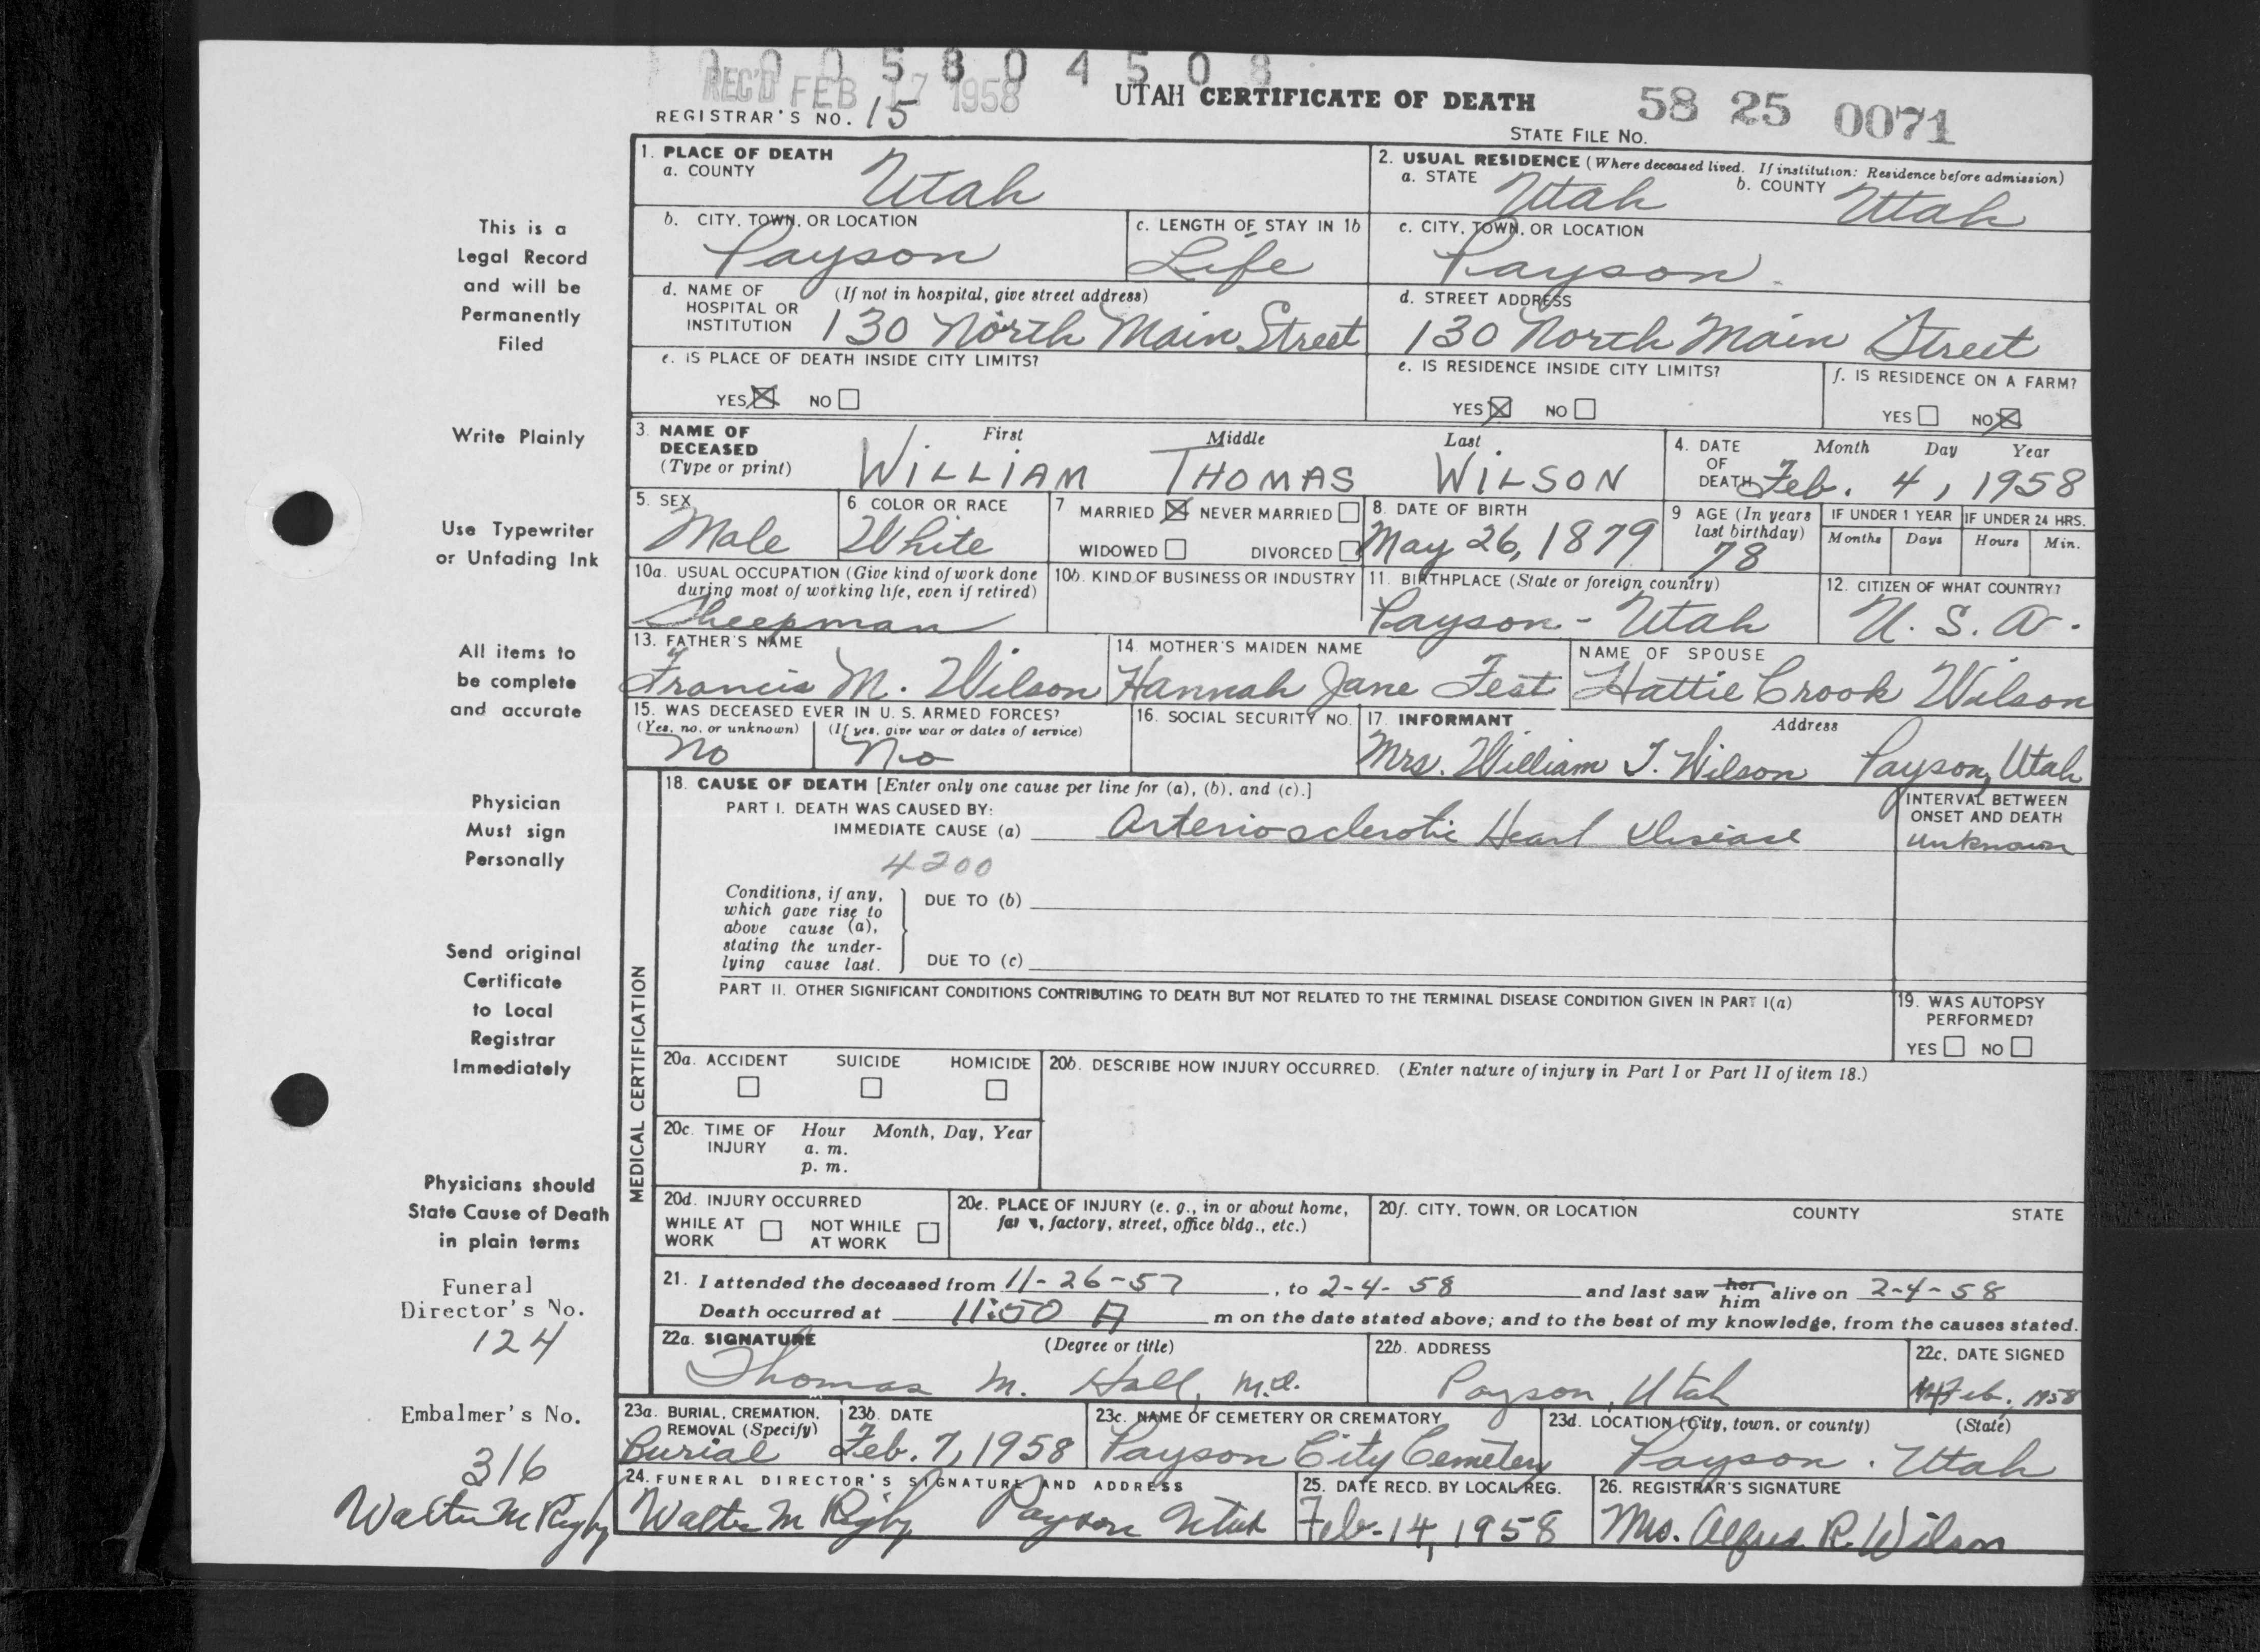 1 0 0 5 8 0 4 5 0 8
REC'D FEB 17 1958
UTAH CERTIFICATE OF DEATH
58 25 0071
REGISTRAR'S NO. 15
STATE FILE NO.
1. PLACE OF DEATH
a. COUNTY Utah
2. USUAL RESIDENCE (Where deceased lived. If institution: Residence before admission)
a. STATE Utah b. COUNTY Utah
b. CITY, TOWN, OR LOCATION Payson
c. LENGTH OF STAY IN 1b Life
c. CITY, TOWN, OR LOCATION Payson
d. NAME OF HOSPITAL OR INSTITUTION (If not in hospital, give street address) 130 North Main Street
d. STREET ADDRESS 130 North Main Street
e. IS PLACE OF DEATH INSIDE CITY LIMITS?
YES NO
e. IS RESIDENCE INSIDE CITY LIMITS?
YES NO
f. IS RESIDENCE ON A FARM?
YES NO
3. NAME OF DECEASED (Type or print)
First Middle Last
WILLIAM THOMAS WILSON
4. DATE OF DEATH
Month Day Year
Feb. 4, 1958
5. SEX Male
6 COLOR OR RACE White
7 MARRIED NEVER MARRIED
WIDOWED DIVORCED
8. DATE OF BIRTH May 26, 1879
9 AGE (In years last birthday) 78
IF UNDER 1 YEAR
Months Days
IF UNDER 24 HRS.
Hours Min.
10a. USUAL OCCUPATION (Give kind of work done during most of working life, even if retired)
Sheepman
10b. KIND OF BUSINESS OR INDUSTRY
11. BIRTHPLACE (State or foreign country)
Payson - Utah
12. CITIZEN OF WHAT COUNTRY?
U. S. A.
13. FATHER'S NAME
Francis M. Wilson
14. MOTHER'S MAIDEN NAME
Hannah Jane Fest
NAME OF SPOUSE
Hattie Crook Wilson
15. WAS DECEASED EVER IN U. S. ARMED FORCES?
(Yes, no, or unknown) (If yes, give war or dates of service)
No No
16. SOCIAL SECURITY NO.
17. INFORMANT Address
Mrs. William T. Wilson Payson, Utah
MEDICAL CERTIFICATION
18. CAUSE OF DEATH [Enter only one cause per line for (a), (b), and (c).]
PART I. DEATH WAS CAUSED BY:
IMMEDIATE CAUSE (a) Arteriosclerotic Heart Disease
INTERVAL BETWEEN ONSET AND DEATH
unknown
4200
Conditions, if any, which gave rise to above cause (a), stating the underlying cause last.
DUE TO (b)
DUE TO (c)
PART II. OTHER SIGNIFICANT CONDITIONS CONTRIBUTING TO DEATH BUT NOT RELATED TO THE TERMINAL DISEASE CONDITION GIVEN IN PART I(a)
19. WAS AUTOPSY PERFORMED?
YES NO
20a. ACCIDENT SUICIDE HOMICIDE
20b. DESCRIBE HOW INJURY OCCURRED. (Enter nature of injury in Part I or Part II of item 18.)
20c. TIME OF INJURY
Hour Month, Day, Year
a. m.
p. m.
20d. INJURY OCCURRED
WHILE AT WORK NOT WHILE AT WORK
20e. PLACE OF INJURY (e. g., in or about home, factory, street, office bldg., etc.)
20f. CITY, TOWN, OR LOCATION COUNTY STATE
21. I attended the deceased from 11-26-57, to 2-4-58 and last saw her him alive on 2-4-58
Death occurred at 11:50 A m on the date stated above; and to the best of my knowledge, from the causes stated.
22a. SIGNATURE (Degree or title)
Thomas M. Hall, M.D.
22b. ADDRESS
Payson, Utah
22c. DATE SIGNED
Feb. 1958
23a. BURIAL, CREMATION, REMOVAL (Specify)
Burial
23b. DATE
Feb. 7, 1958
23c. NAME OF CEMETERY OR CREMATORY
Payson City Cemetery
23d. LOCATION (City, town, or county) (State)
Payson. Utah
24. FUNERAL DIRECTOR'S SIGNATURE AND ADDRESS
Walter M Rigby Payson Utah
25. DATE RECD. BY LOCAL REG.
Feb-14, 1958
26. REGISTRAR'S SIGNATURE
Mrs. Alfred R. Wilson
This is a
Legal Record
and will be
Permanently
Filed
Write Plainly
Use Typewriter
or Unfading Ink
All items to
be complete
and accurate
Physician
Must sign
Personally
Send original
Certificate
to Local
Registrar
Immediately
Physicians should
State Cause of Death
in plain terms
Funeral
Director's No.
124
Embalmer's No.
316
Walter M Rigby